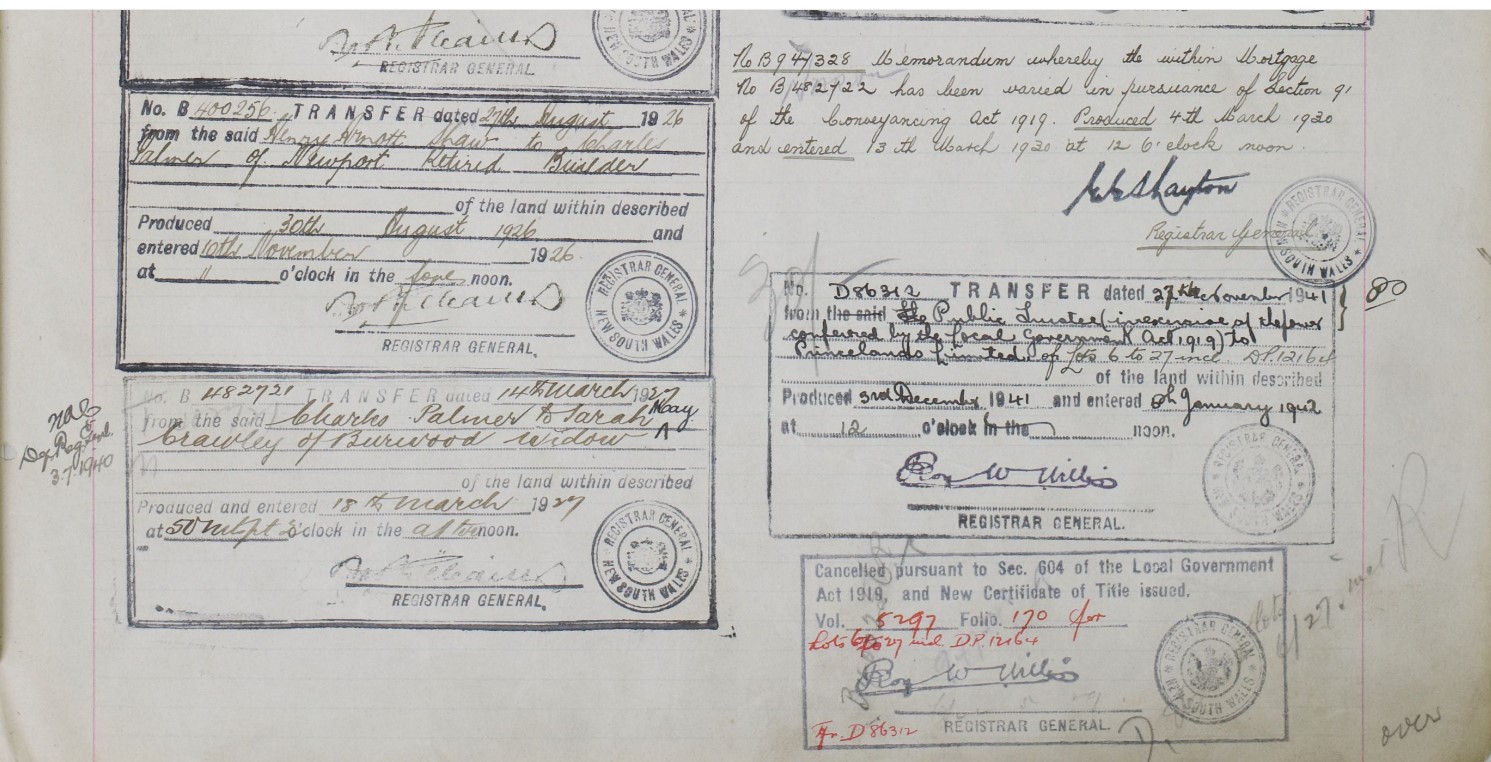 REGISTRAR GENERAL.
NEW SOUTH WALES
No. B 400256 TRANSFER dated 27th August 1926
from the said Henry Arnott Shaw to Charles
Palmer of Newport Retired Builder
of the land within described
Produced 30th August 1926 and
entered 10th November 1926.
at 11 o'clock in the fore noon.
REGISTRAR GENERAL.
REGISTRAR GENERAL NEW SOUTH WALES
No. B 482721 TRANSFER dated 14th March 1927
from the said Charles Palmer to Sarah May
Crawley of Burwood Widow
of the land within described
Produced and entered 18th March 1927
at 50 m pt 2 o'clock in the afternoon.
REGISTRAR GENERAL.
REGISTRAR GENERAL NEW SOUTH WALES
Dep. Reg. Genl.
3.7.1940
No B947328 Memorandum whereby the within Mortgage
No B482722 has been varied in pursuance of Section 91
of the Conveyancing Act 1919. Produced 4th March 1930
and entered 13th March 1930 at 12 o'clock noon.
Registrar General
REGISTRAR GENERAL NEW SOUTH WALES
No. D86312 TRANSFER dated 27th November 1941
from the said the Public Trustee (in exercise of the power
conferred by the Local Government Act 1919) to
Princelands Limited. of Lots 6 to 27 incl. D.P. 12164
of the land within described
Produced 3rd December 1941 and entered 8th January 1942
at 12 o'clock in the noon.
Roy W Willis
REGISTRAR GENERAL.
REGISTRAR GENERAL NEW SOUTH WALES
80
Cancelled pursuant to Sec. 604 of the Local Government
Act 1919, and New Certificate of Title issued.
Vol. 5297 Folio. 170 for
Lots 6 to 27 incl. D.P. 12164
Roy W Willis
REGISTRAR GENERAL.
Tr. D86312
REGISTRAR GENERAL NEW SOUTH WALES
lots
6/27. incl.
over